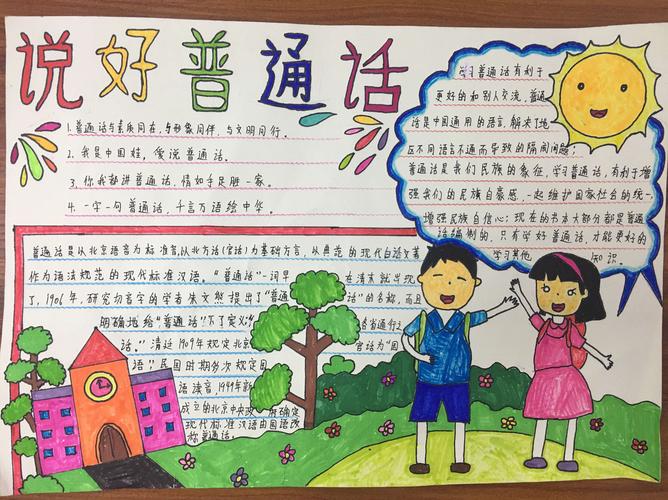 说好普通话
1.普通话与素质同在,与形象同伴,与文明同行。
2.我是中国娃,爱说普通话。
3.你我都讲普通话,情如手足胜一家。
4.一字一句普通话,千言万语绘中华。
学习普通话有利于
更好的和别人交流,普通
话是中国通用的语言,解决了地
区不同语言不通而导致的隔阂问题;
普通话是我们民族的象征,学习普通话,有利于增
强我们的民族自豪感,一起维护国家社会的统一,
增强民族自信心;现在的书本大部分都是普通
话编制的,只有学好普通话,才能更好的
学习其他知识。
普通话是以北京语音为标准音,以北方话(官话)为基础方言,从典范的现代白话文著
作为语法规范的现代标准汉语。"普通话"一词早在清末就出现
了,1906年,研究切音字的学者朱文熊提出了"普通话"的名称,而且
明确地给"普通话"下了定义"各省通行之
话。"清廷1909年规定北京官话为"国
语",民国时期多次规定国
语读音,1949年新
成立的北京中央政确定
现代标准汉语由国语改
称普通话。